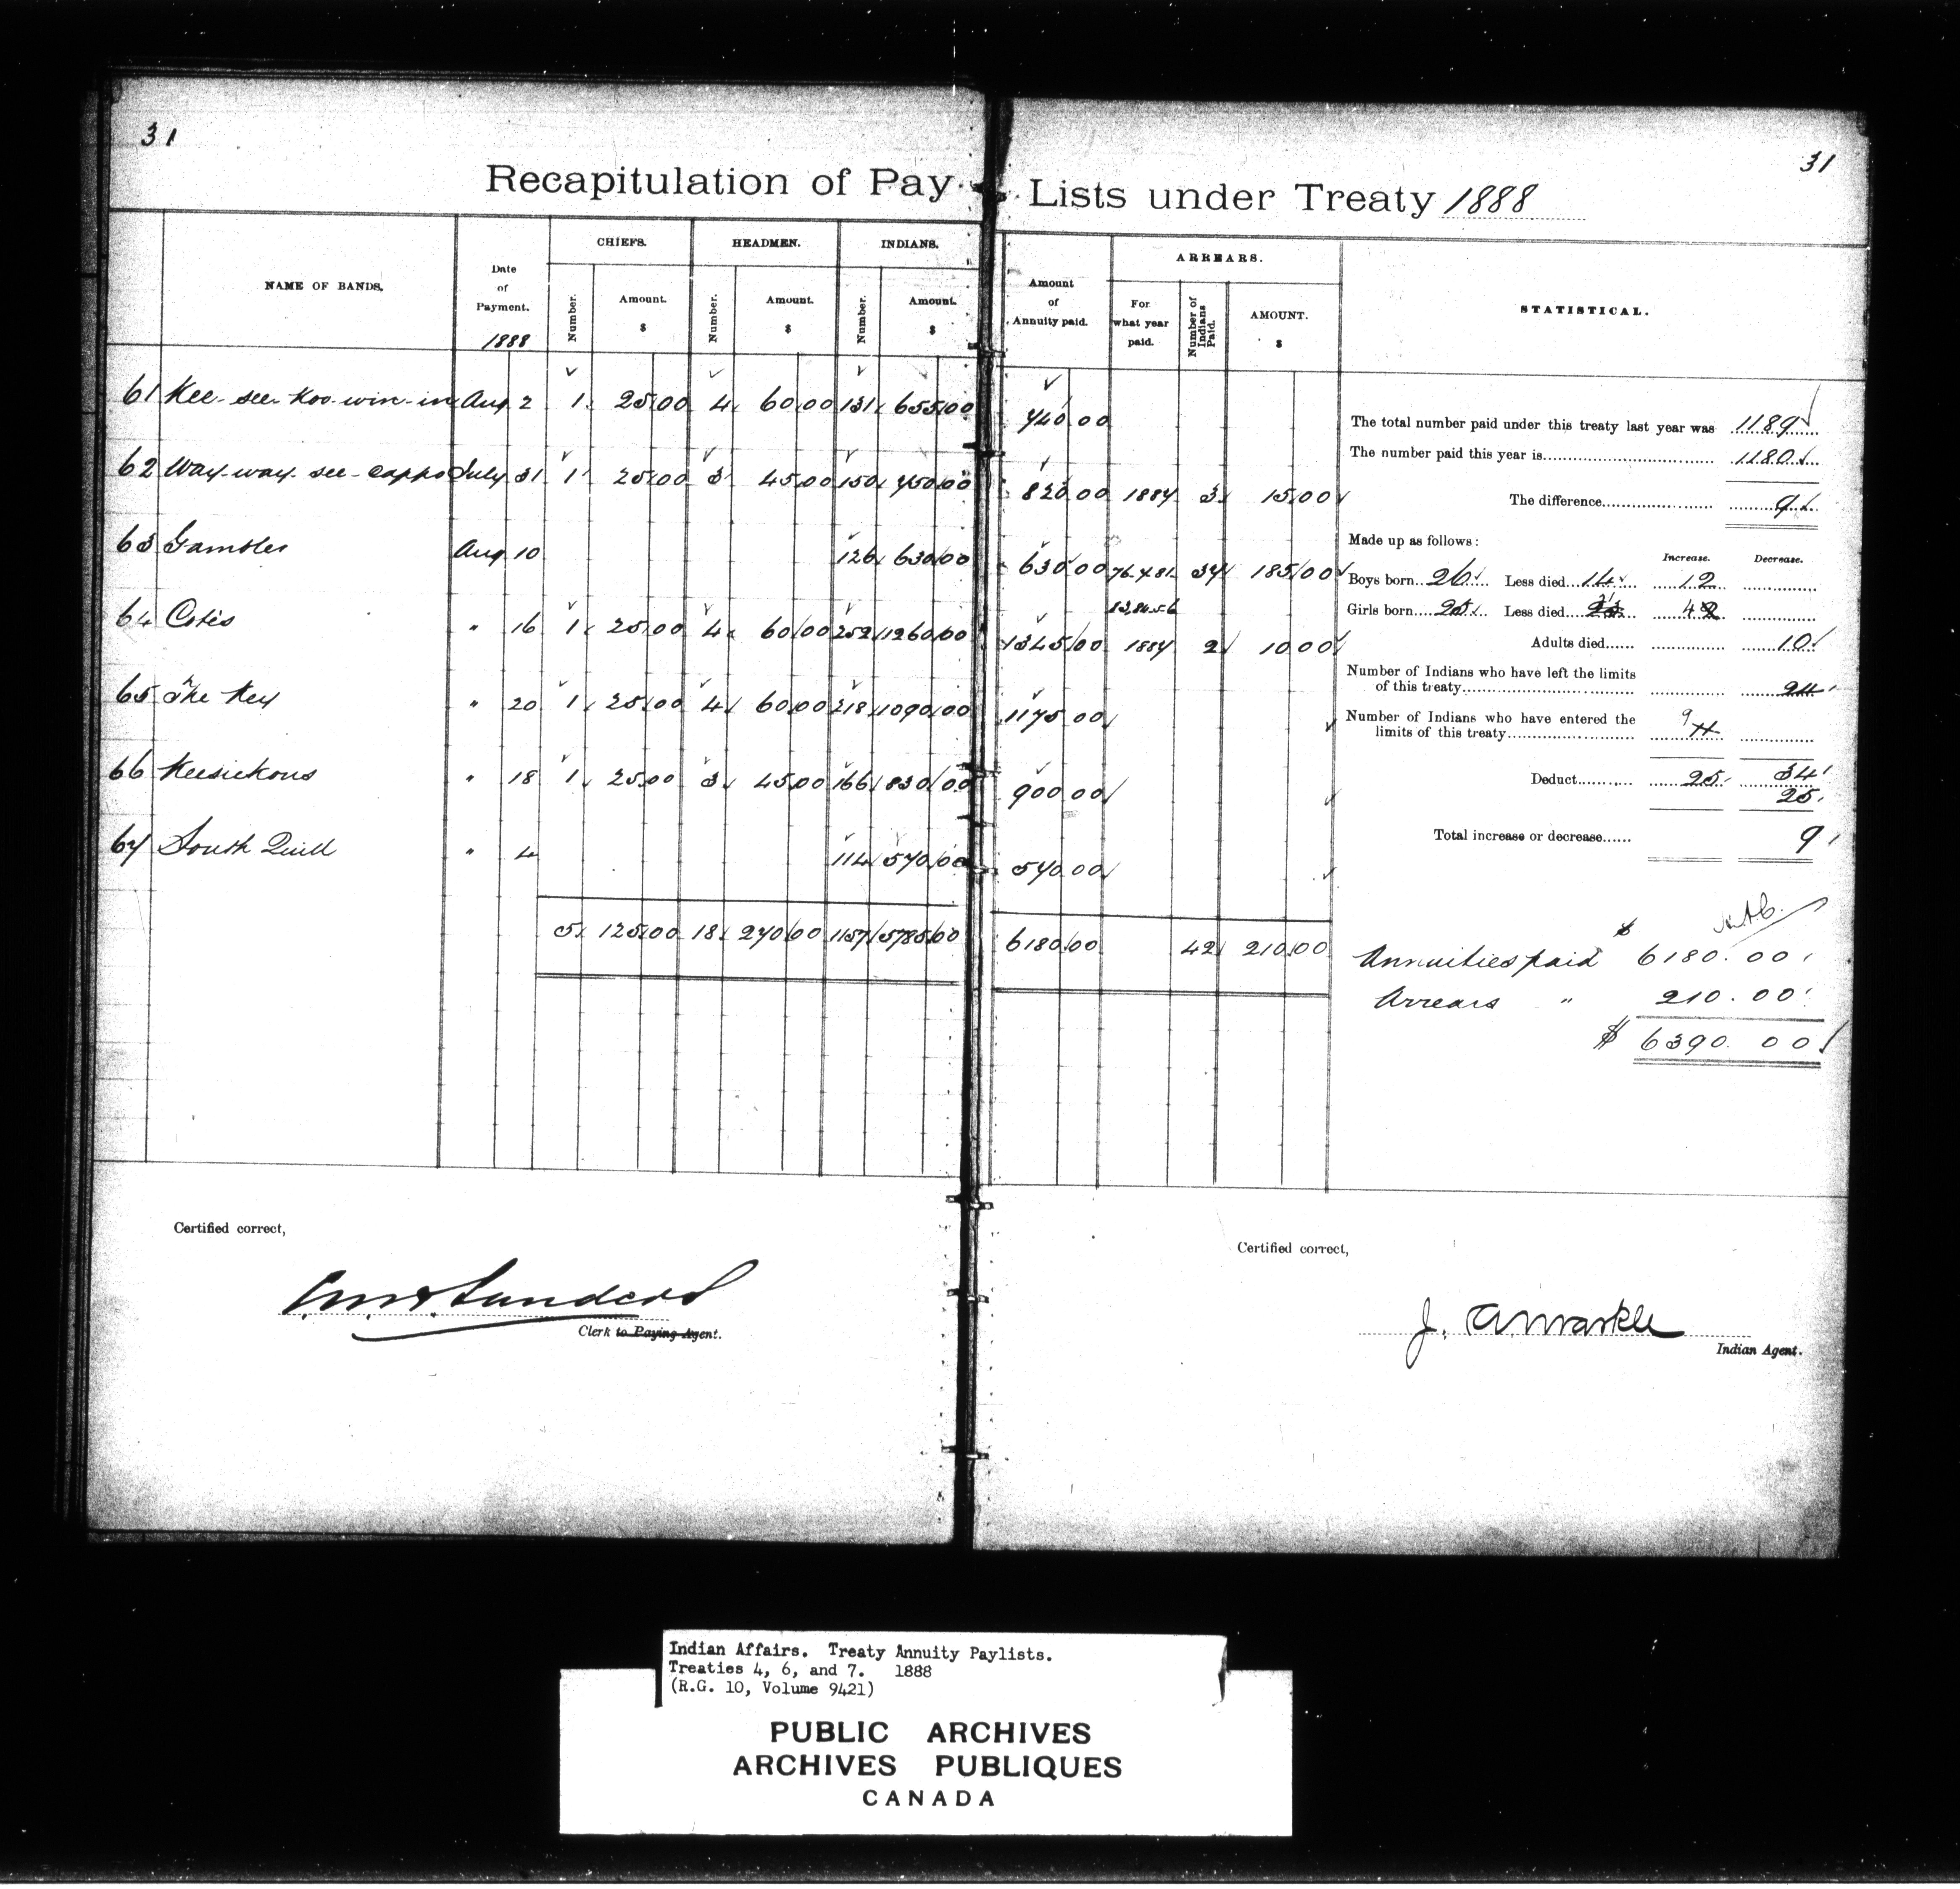 31
31
Recapitulation of Pay Lists under Treaty 1888
NAME OF BANDS.
Date of Payment. 1888
CHIEFS. Number. Amount. $
HEADMEN. Number. Amount. $
INDIANS. Number. Amount. $
Amount of Annuity paid.
ARREARS. For what year paid. Number of Indians Paid. AMOUNT. $
STATISTICAL.
61 Kee-see-koo-win-in Aug 2 1 25.00 4 60.00 131 655.00 740.00
62 Way-way-see-cappo July 31 1 25.00 3 45.00 150 750.00 820.00 1887 3 15.00
63 Gambler Aug 10 126 630.00 630.00 37 185.00
64 Cotes " 16 1 25.00 4 60.00 252 1260.00 1345.00 1887 2 10.00
65 The Key " 20 1 25.00 4 60.00 218 1090.00 1175.00
66 Keesickous " 18 1 25.00 3 45.00 166 830.00 900.00
67 South Quill " 4 114 570.00 570.00
5 125.00 18 270.00 1157 5785.00 6180.00 42 210.00
The total number paid under this treaty last year was 1189
The number paid this year is 1180
The difference 9
Made up as follows:
Increase. Decrease.
Boys born 26 Less died 14 12
Girls born 25 Less died 21 4
Adults died 10
Number of Indians who have left the limits
of this treaty 24
Number of Indians who have entered the
limits of this treaty 9
Deduct 25 34
25
Total increase or decrease 9
$
Annuities paid 6180.00
Arrears " 210.00
$ 6390.00
Certified correct,
Clerk to Paying Agent.
Certified correct,
J. A. Markle
Indian Agent.
Indian Affairs. Treaty Annuity Paylists.
Treaties 4, 6, and 7. 1888
(R.G. 10, Volume 9421)
PUBLIC ARCHIVES
ARCHIVES PUBLIQUES
CANADA